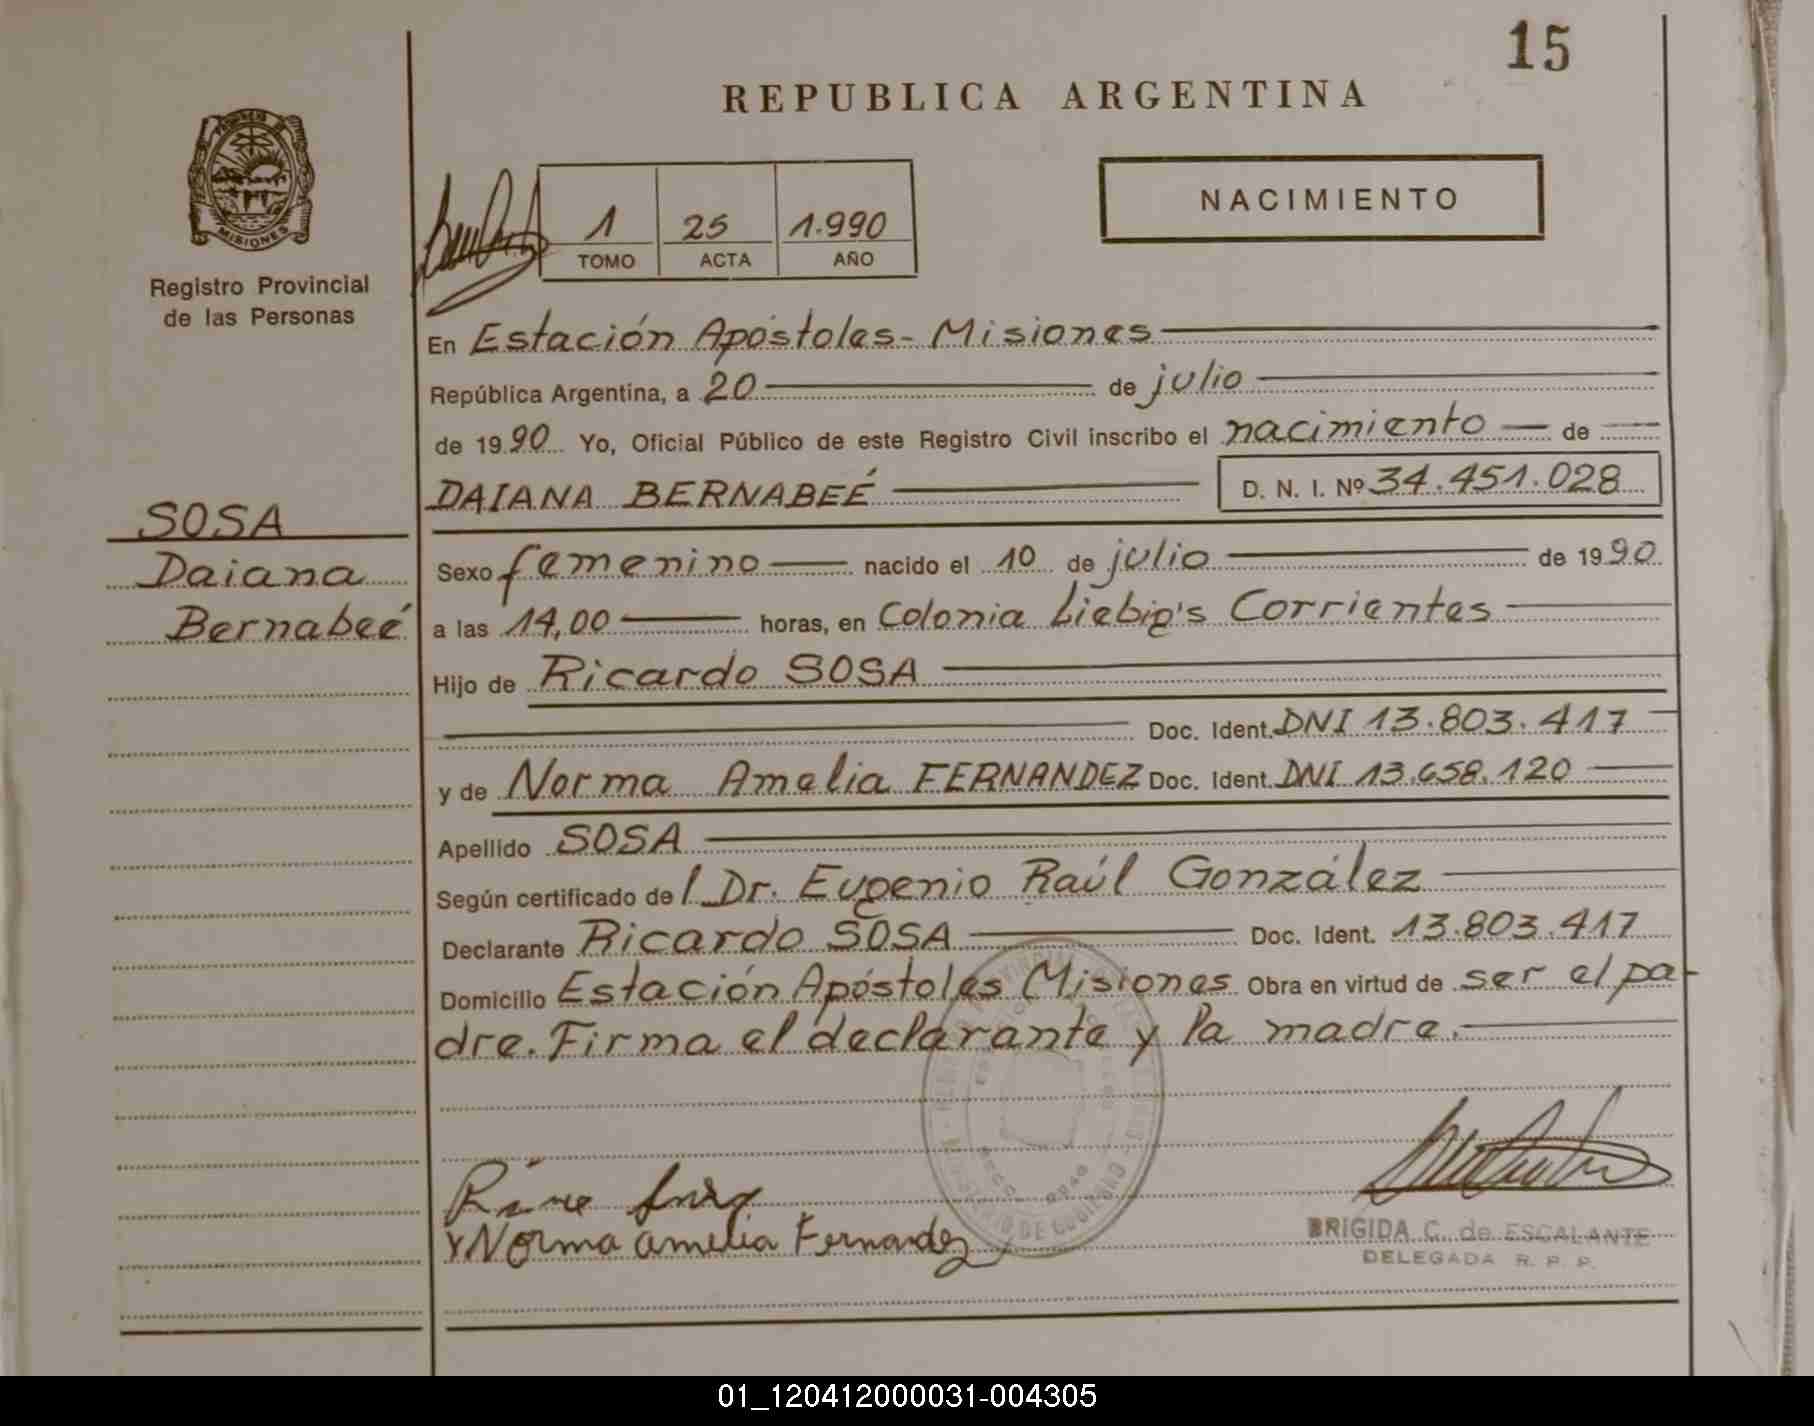 15
REPUBLICA ARGENTINA
PROVINCIA DE
MISIONES
Registro Provincial
de las Personas
1 25 1.990
TOMO ACTA AÑO
NACIMIENTO
En Estación Apóstoles - Misiones
República Argentina, a 20 de julio
de 1990 Yo, Oficial Público de este Registro Civil inscribo el nacimiento de
DAIANA BERNABEÉ D. N. I. Nº 34.451.028
SOSA
Daiana
Bernabeé
Sexo femenino nacido el 10 de julio de 1990
a las 14,00 horas, en Colonia Liebig's Corrientes
Hijo de Ricardo SOSA
Doc. Ident. DNI 13.803.417
y de Norma Amelia FERNANDEZ Doc. Ident. DNI 13.658.120
Apellido SOSA
Según certificado de l Dr. Eugenio Raúl González
Declarante Ricardo SOSA Doc. Ident. 13.803.417
Domicilio Estación Apóstoles Misiones Obra en virtud de ser el pa-
dre. Firma el declarante y la madre.
Norma amelia Fernandez
BRIGIDA C. de ESCALANTE
DELEGADA R. P. P.
01_120412000031-004305